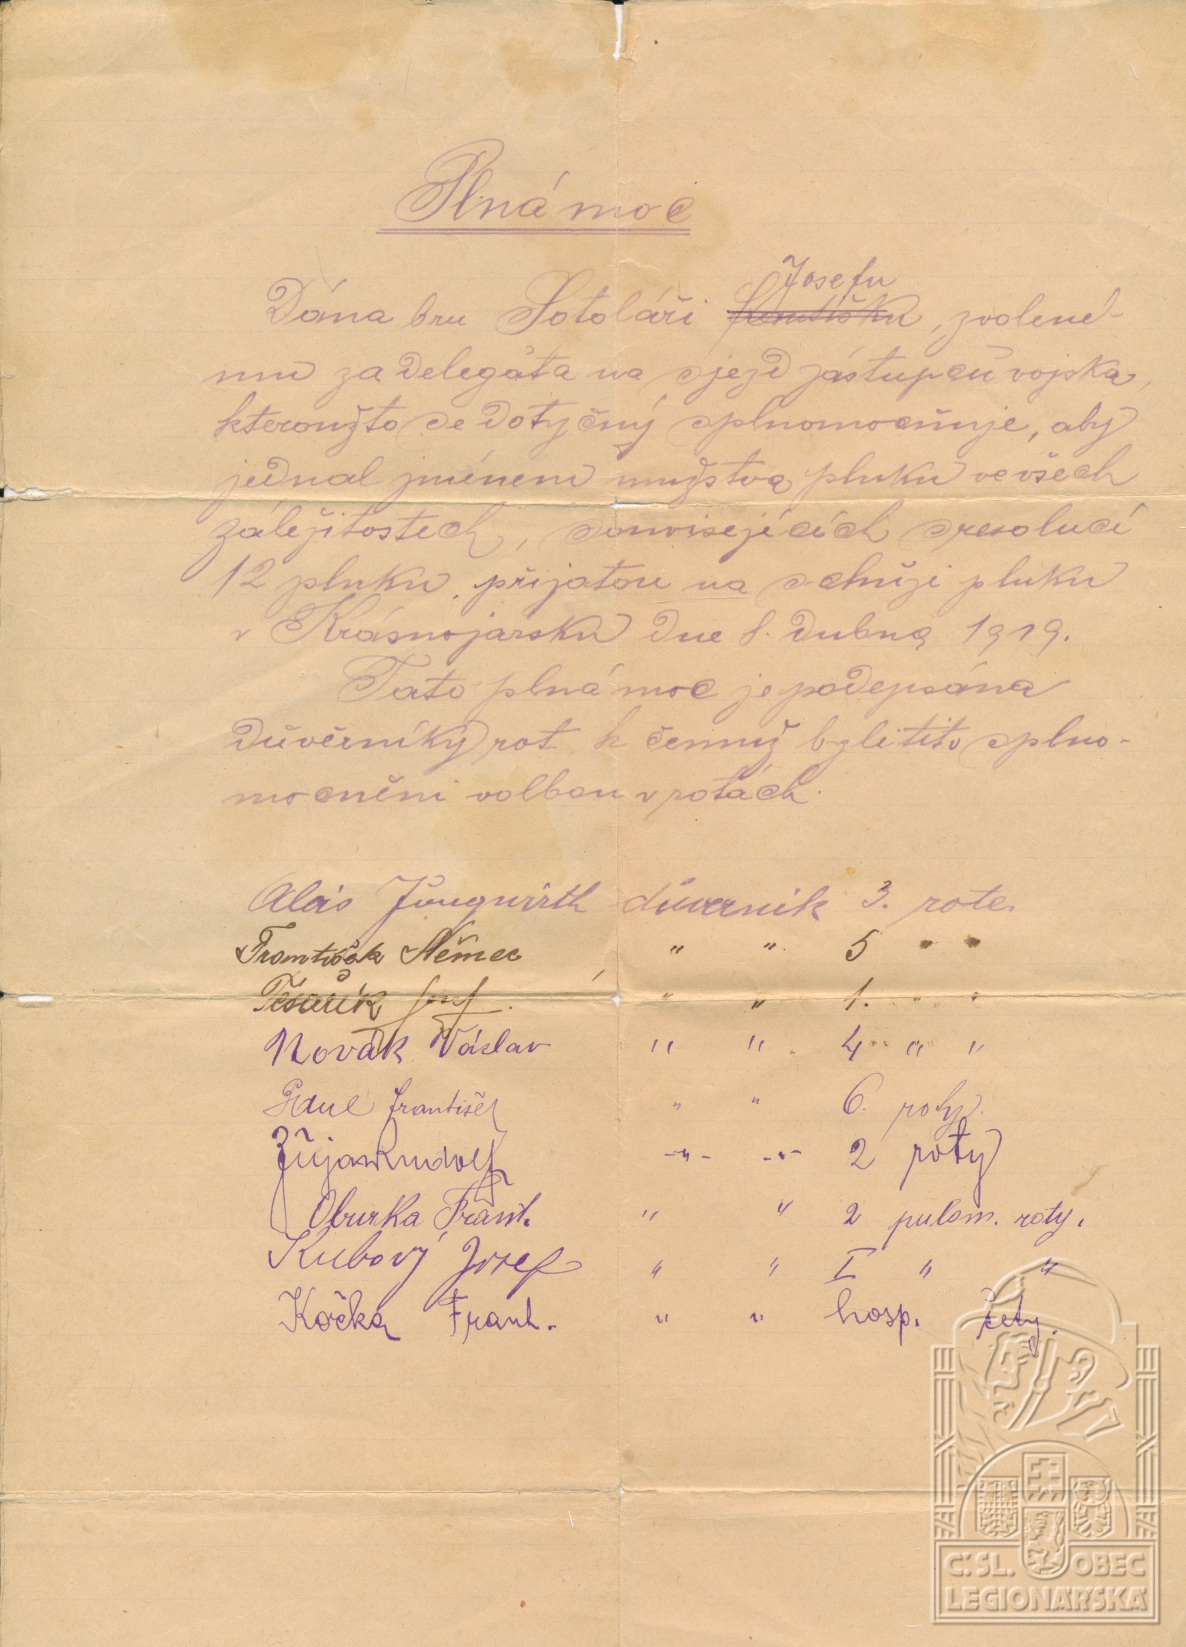 Plná moc
Josefu
Dána bru Sotoláři Františku, zvolené-
mu za delegáta na sjezd zástupců vojska,
kteroužto se dotyčný splnomocňuje, aby
jednal jménem mužstva pluku ve všech
záležitostech, souvisejících s resolucí
12 pluku, přijatou na schůzi pluku
v Krásnojarsku dne 8. dubna 1919.
Tato plná moc je podepsána
důvěrníky rot, k čemuž byli tito splno-
mocněni volbou v rotách.
Alois Jungwirth důverník 3. rote.
František Němec " " 5 " "
Těsařík Josef. " " 1. " "
Novák Václav " " 4 " "
František " " 6. roty.
Rudolf -"- -"- 2 roty
Oburka Frant. " " 2 pulom. roty.
Kubový Josef " " I " "
Kočka Frant. " " hosp. čety.
Č.SL. OBEC
LEGIONÁŘSKÁ